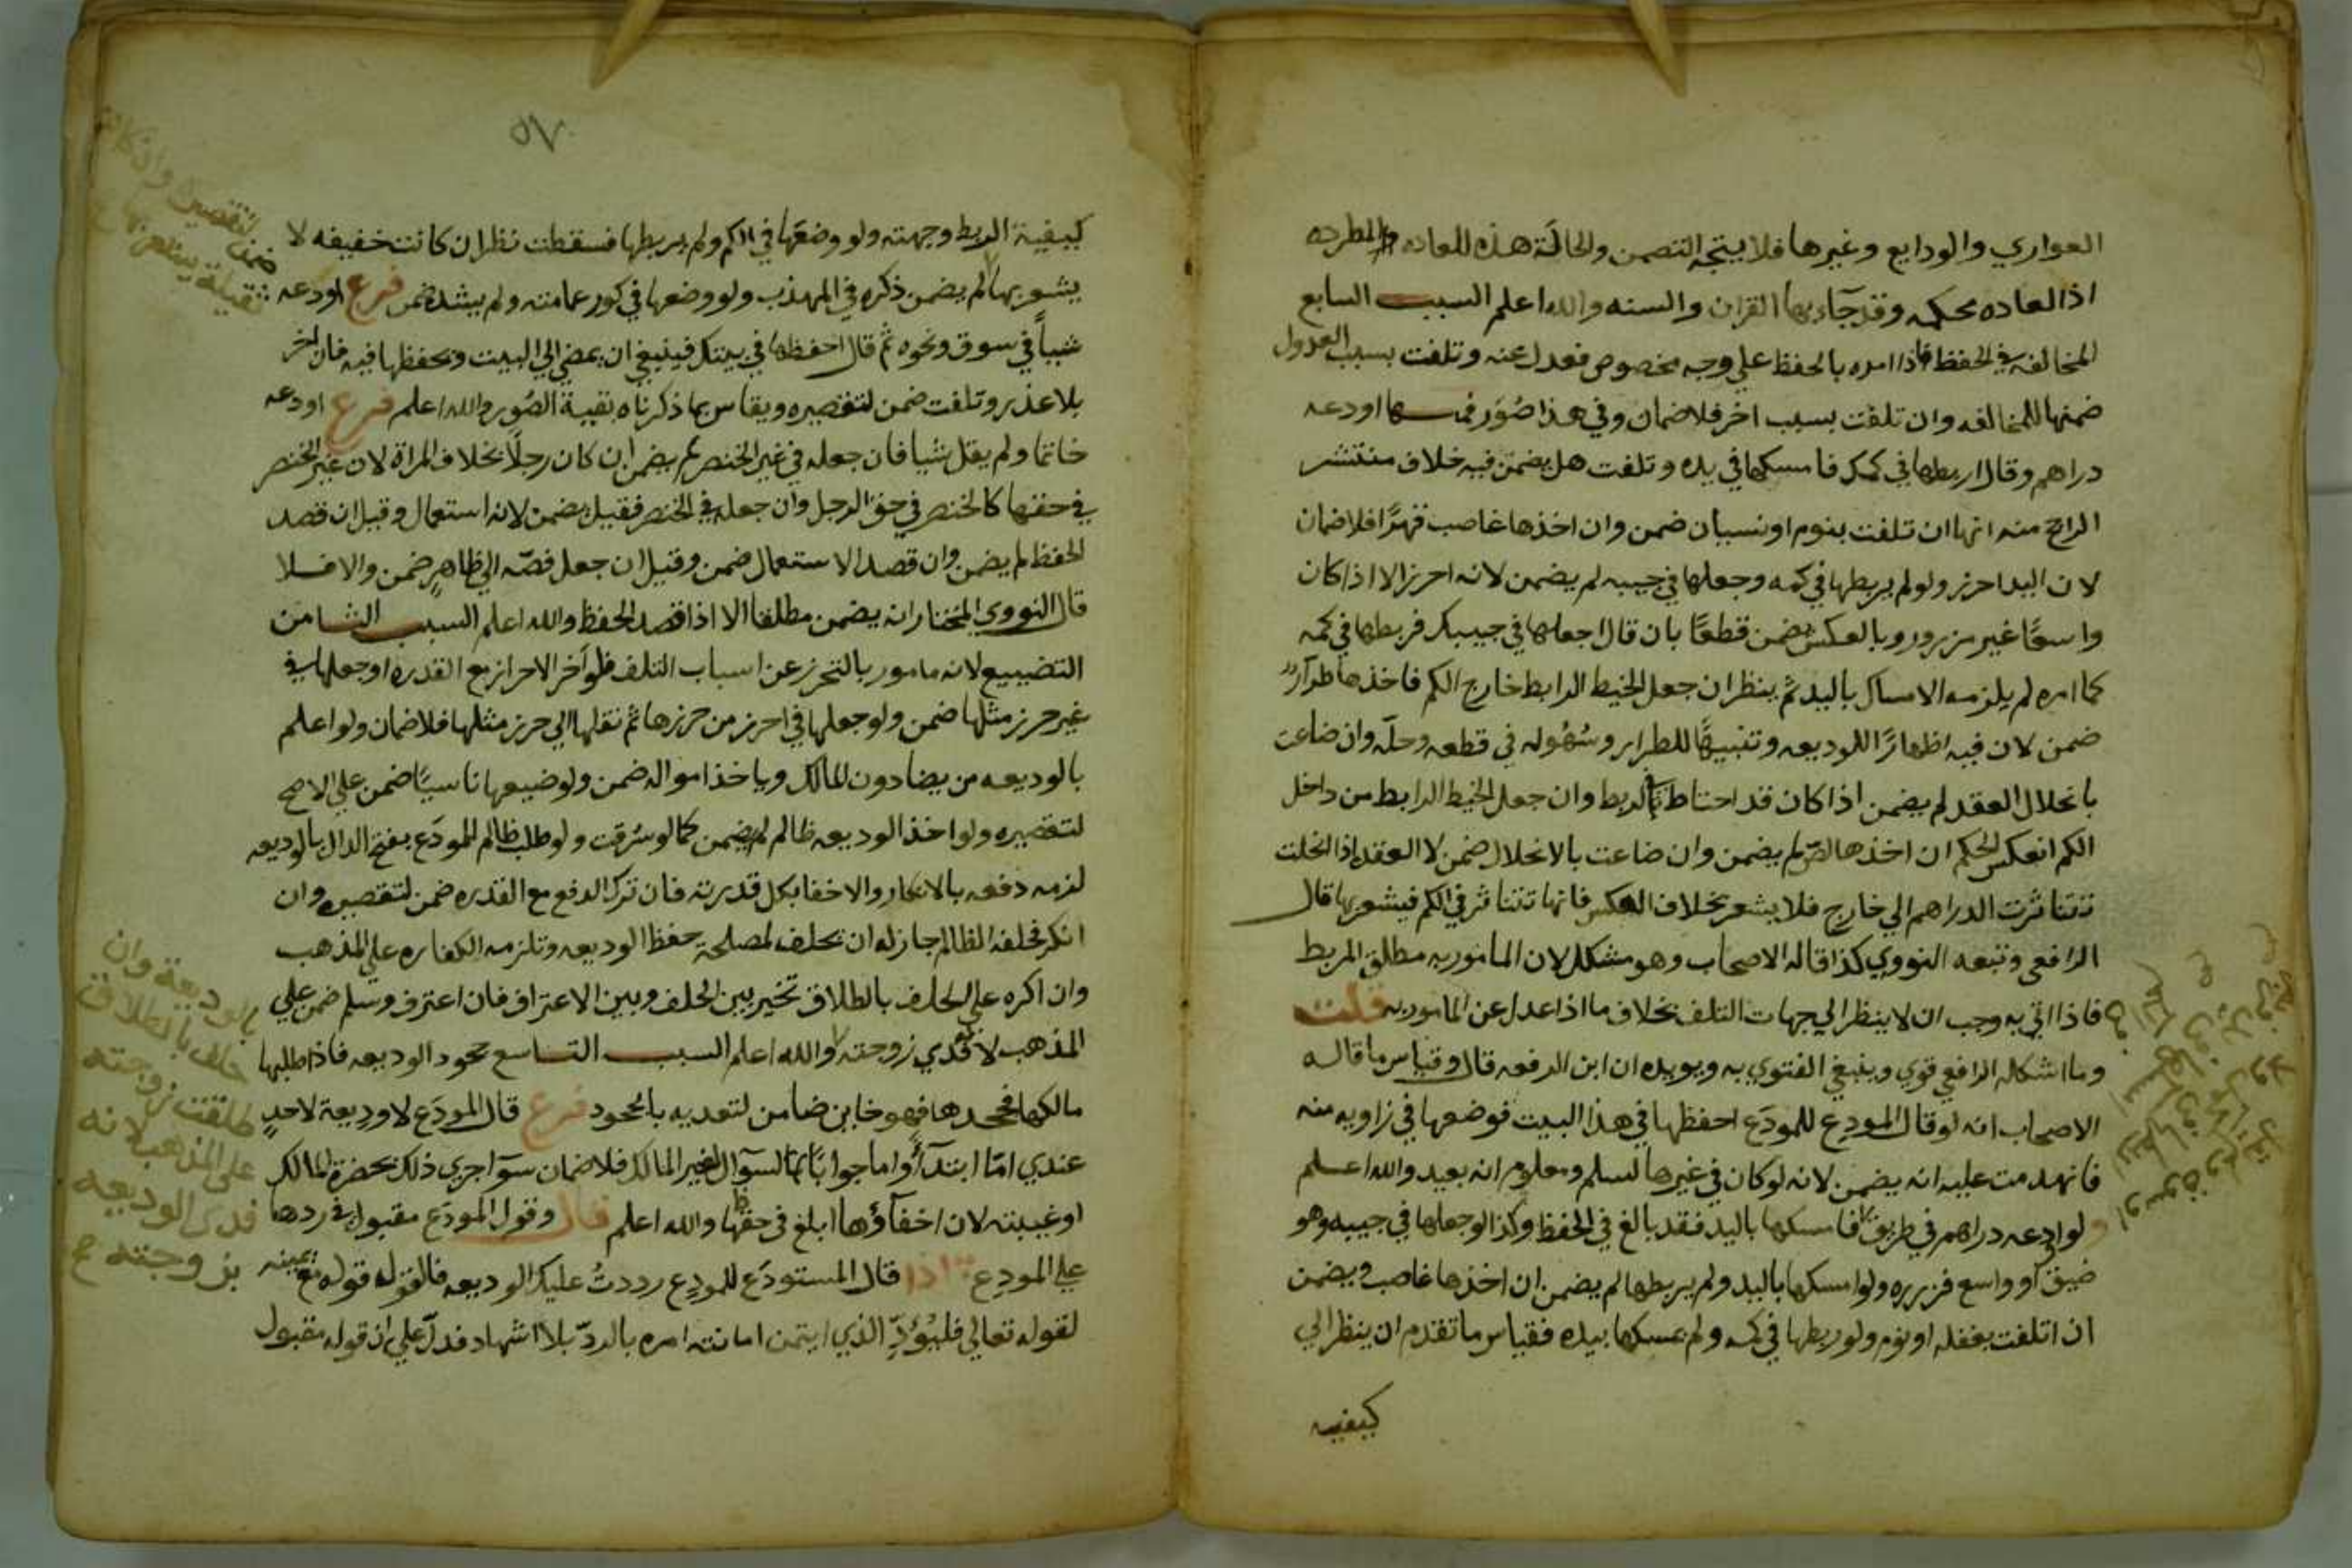 العواري والودايع وغيرها فلا يتجه التضمين والحالة هذه للعاده المطرده
اذ العاده محكمه وقد جآء بها القران والسنه والله اعلم السبب السابع
المخالفه في الحفظ فاذا امره بالحفظ علي وجه مخصوص فعدل عنه وتلفت بسبب العدول
ضمنها للمخالفه وان تلفت بسبب اخر فلا ضمان وفي هذا صُوَر فمنها اودعه
دراهم وقال اربطها في كمك فامسكها في يده وتلفت هل يضمن فيه خلاف منتشر
الراجح منه انها ان تلفت بنوم او نسيان ضمن وان اخذها غاصب قهرًا فلا ضمان
لان اليد احرز ولو لم يربطها في كمه وجعلها في جيبه لم يضمن لانه احرز الا اذا كان
واسعًا غير مزرور وبالعكس يضمن قطعًا بان قال اجعلها في جيبك فربطها في كمه
كما امره لم يلزمه الامساك باليد ثم ينظر ان جعل الخيط الرابط خارج الكم فاخذها طرآرٌ
ضمن لان فيه اظهارًا للوديعه وتنبيهًا للطرار وسُهُوله في قطعه وحلّه وان ضاعت
بانحلال العقد لم يضمن اذا كان قد احتاط بالربط وان جعل الخيط الرابط من داخل
الكم انعكس الحكم ان اخذها اللص لم يضمن وان ضاعت بالانحلال ضمن لا العقد اذا انحلت
تتناثرت الدراهم الي خارج فلا يشعر بخلاف العكس فانها تتناثر في الكم فيشعر بها قال
الرافعي وتبعه النووي كذا قاله الاصحاب وهو مشكل لان المامور به مطلق الربط
فاذا اتي به وجب ان لا ينظر الي جهات التلف بخلاف ما اذا عدل عن المامور به قلت
وما اشكله الرافعي قوي وينبغي الفتوي به ويويده ان ابن الرفعه قال وقياس ما قاله
الاصحاب انه لو قال المودِع للمودَع احفظها في هذا البيت فوضعها في زاويه منه
فانهدمت عليه انه يضمن لانه لو كان في غيرها لسلم ومعلوم انه بعيد والله اعلم
ولو اودعه دراهم في طريق فامسكها باليد فقد بالغ في الحفظ وكذا لو جعلها في جيبه وهو
ضيق او واسع فزرره ولو امسكها باليد ولم يربطها لم يضمن ان اخذها غاصب ويضمن
ان اتلفت بغفله او نوم ولو ربطها في كمه ولم يمسكها بيده فقياس ما تقدم ان ينظر الي
كيفيه
٥٧
كيفية الربط وجهته ولو وضعها في الكم ولم يربطها فسقطت نظر ان كانت خفيفه لا
يشعر بها لم يضمن ذكره في المهذب ولو وضعها في كور عمامته ولم يشده ضمن فرع اودعه
شياً في سوق ونحوه ثم قال احفظها في بيتك فينبغي ان يمضي الي البيت ويحفظها فيه فان اخر
بلا عذر وتلفت ضمن لتقصيره ويقاس بما ذكرناه بقية الصُور والله اعلم فرع اودعه
خاتما ولم يقل شيا فان جعله في غير الخنصر لم يضمن ان كان رجلًا بخلاف المراة لان غير الخنصر
في حقها كالخنصر في حق الرجل وان جعله في الخنصر فقيل يضمن لانه استعمال وقيل ان قصد
الحفظ لم يضمن وان قصد الاستعمال ضمن وقيل ان جعل فصّه الي ظاهرٍ ضمن والا فلا
قال النووي المختار انه يضمن مطلقا الا اذا قصد الحفظ والله اعلم السبب الثامن
التضييع لانه مامور بالتحرز عن اسباب التلف فلو آخر الاحراز مع القدره او جعلها في
غير حرز مثلها ضمن ولو جعلها في احرز من حرزها ثم نقلها الي حرز مثلها فلا ضمان ولو اعلم
بالوديعه من يصادون المالك وياخذ امواله ضمن ولو ضيعها ناسيًا ضمن علي الاصح
لتقصيره ولو اخذ الوديعه ظالم لم يضمن كما لو سُرقت ولو طلب ظالم المودَع بفتح الدال بالوديعه
لزمه دفعه بالانكار والاخفا بكل قدرته فان ترك الدفع مع القدره ضمن لتقصيره وان
انكر فحلفه الظالم جاز له ان يحلف لمصلحة حفظ الوديعه وتلزمه الكفاره علي المذهب
وان اكره علي الحلف بالطلاق تخير بين الحلف وبين الاعتراف فان اعترف وسلم ضمن علي
المذهب لا فدي زوجته والله اعلم السبب التاسع جحود الوديعه فاذا طلبها
مالكها فجحدها فهو خاين ضامن لتعديه بالجحود فرع قال المودَع لا وديعة لاحدٍ
عندي امّا ابتدآءً واما جوابًا لسوال غير المالك فلا ضمان سوا جري ذلك بحضرة المالك
او غيبته لان اخفآؤها ابلغ في حفظها والله اعلم قال وقول المودَع مقبول في ردها
علي المودِع اذا قال المستودَع للمودِع رددتُ عليك الوديعه فالقول قوله مع يمينه
لقوله تعالي فليُؤدِّ الذي ايتمن امانته امره بالردّ بلا اشهاد فدلّ علي ان قوله مقبول
ضمن لتقصيره وان كانت
ثقيلة يشعر بها
بالوديعة وان
حلف بالطلاق
طلقت زوجته
علي المذهب لانه
فدى الوديعه
بزوجته